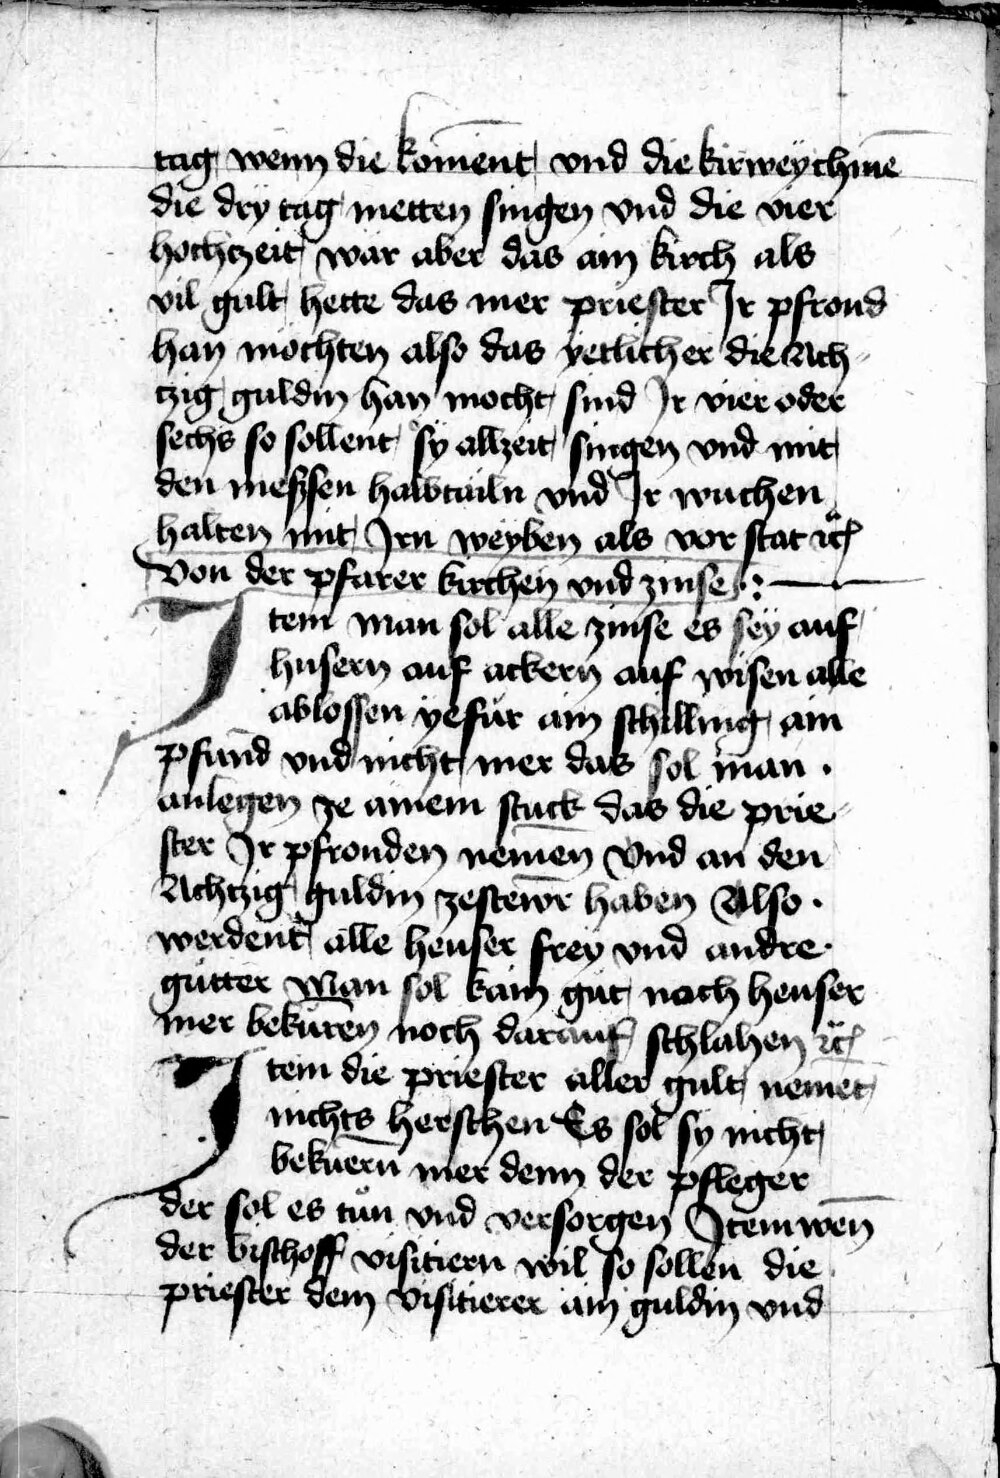 tag wenn die komēnt vnd die kirweychinē
die dry tag metten singen vnd die vier
hochtzeit wär aber das ain kirch als
vil gült hette das mer priester Jr pfrond
han möchten also das yetlicher die Ach-
tzig guldin han mocht sind Jr vier oder
sechs so sollent sy allzeit singen vnd mit
den meszsen habtailn vnd Jr wuchen
halten mit Jrn weyben als vor stat ꝛc̈
Von der pfarer kirchen vnd zinse
Jtem man sol alle zinse es sey auf
husern auf ackern auf wisen alle
ablossen ye für ain schilling ain
pfund vnd nicht mer das sol man .
anlegen ze ainem stuck das die prie-
ster Jr pfronden nemen Vnd an den
Achtzig guldin ze stewr haben Also .
werdent alle heuser frey vnd andre.
gütter Man sol kain güt noch heuser
mer bekūren noch darauf schlahen ꝛc̈
Jtem die priester aller gült nemet
nichts herschen Es sol sy nicht
bekuern mer denn der pfleger
der sol es tůn vnd versorgen Jtem wēn
der bischoff visitiern wil so sollen die
priester dem visitierer ain guldin vnd